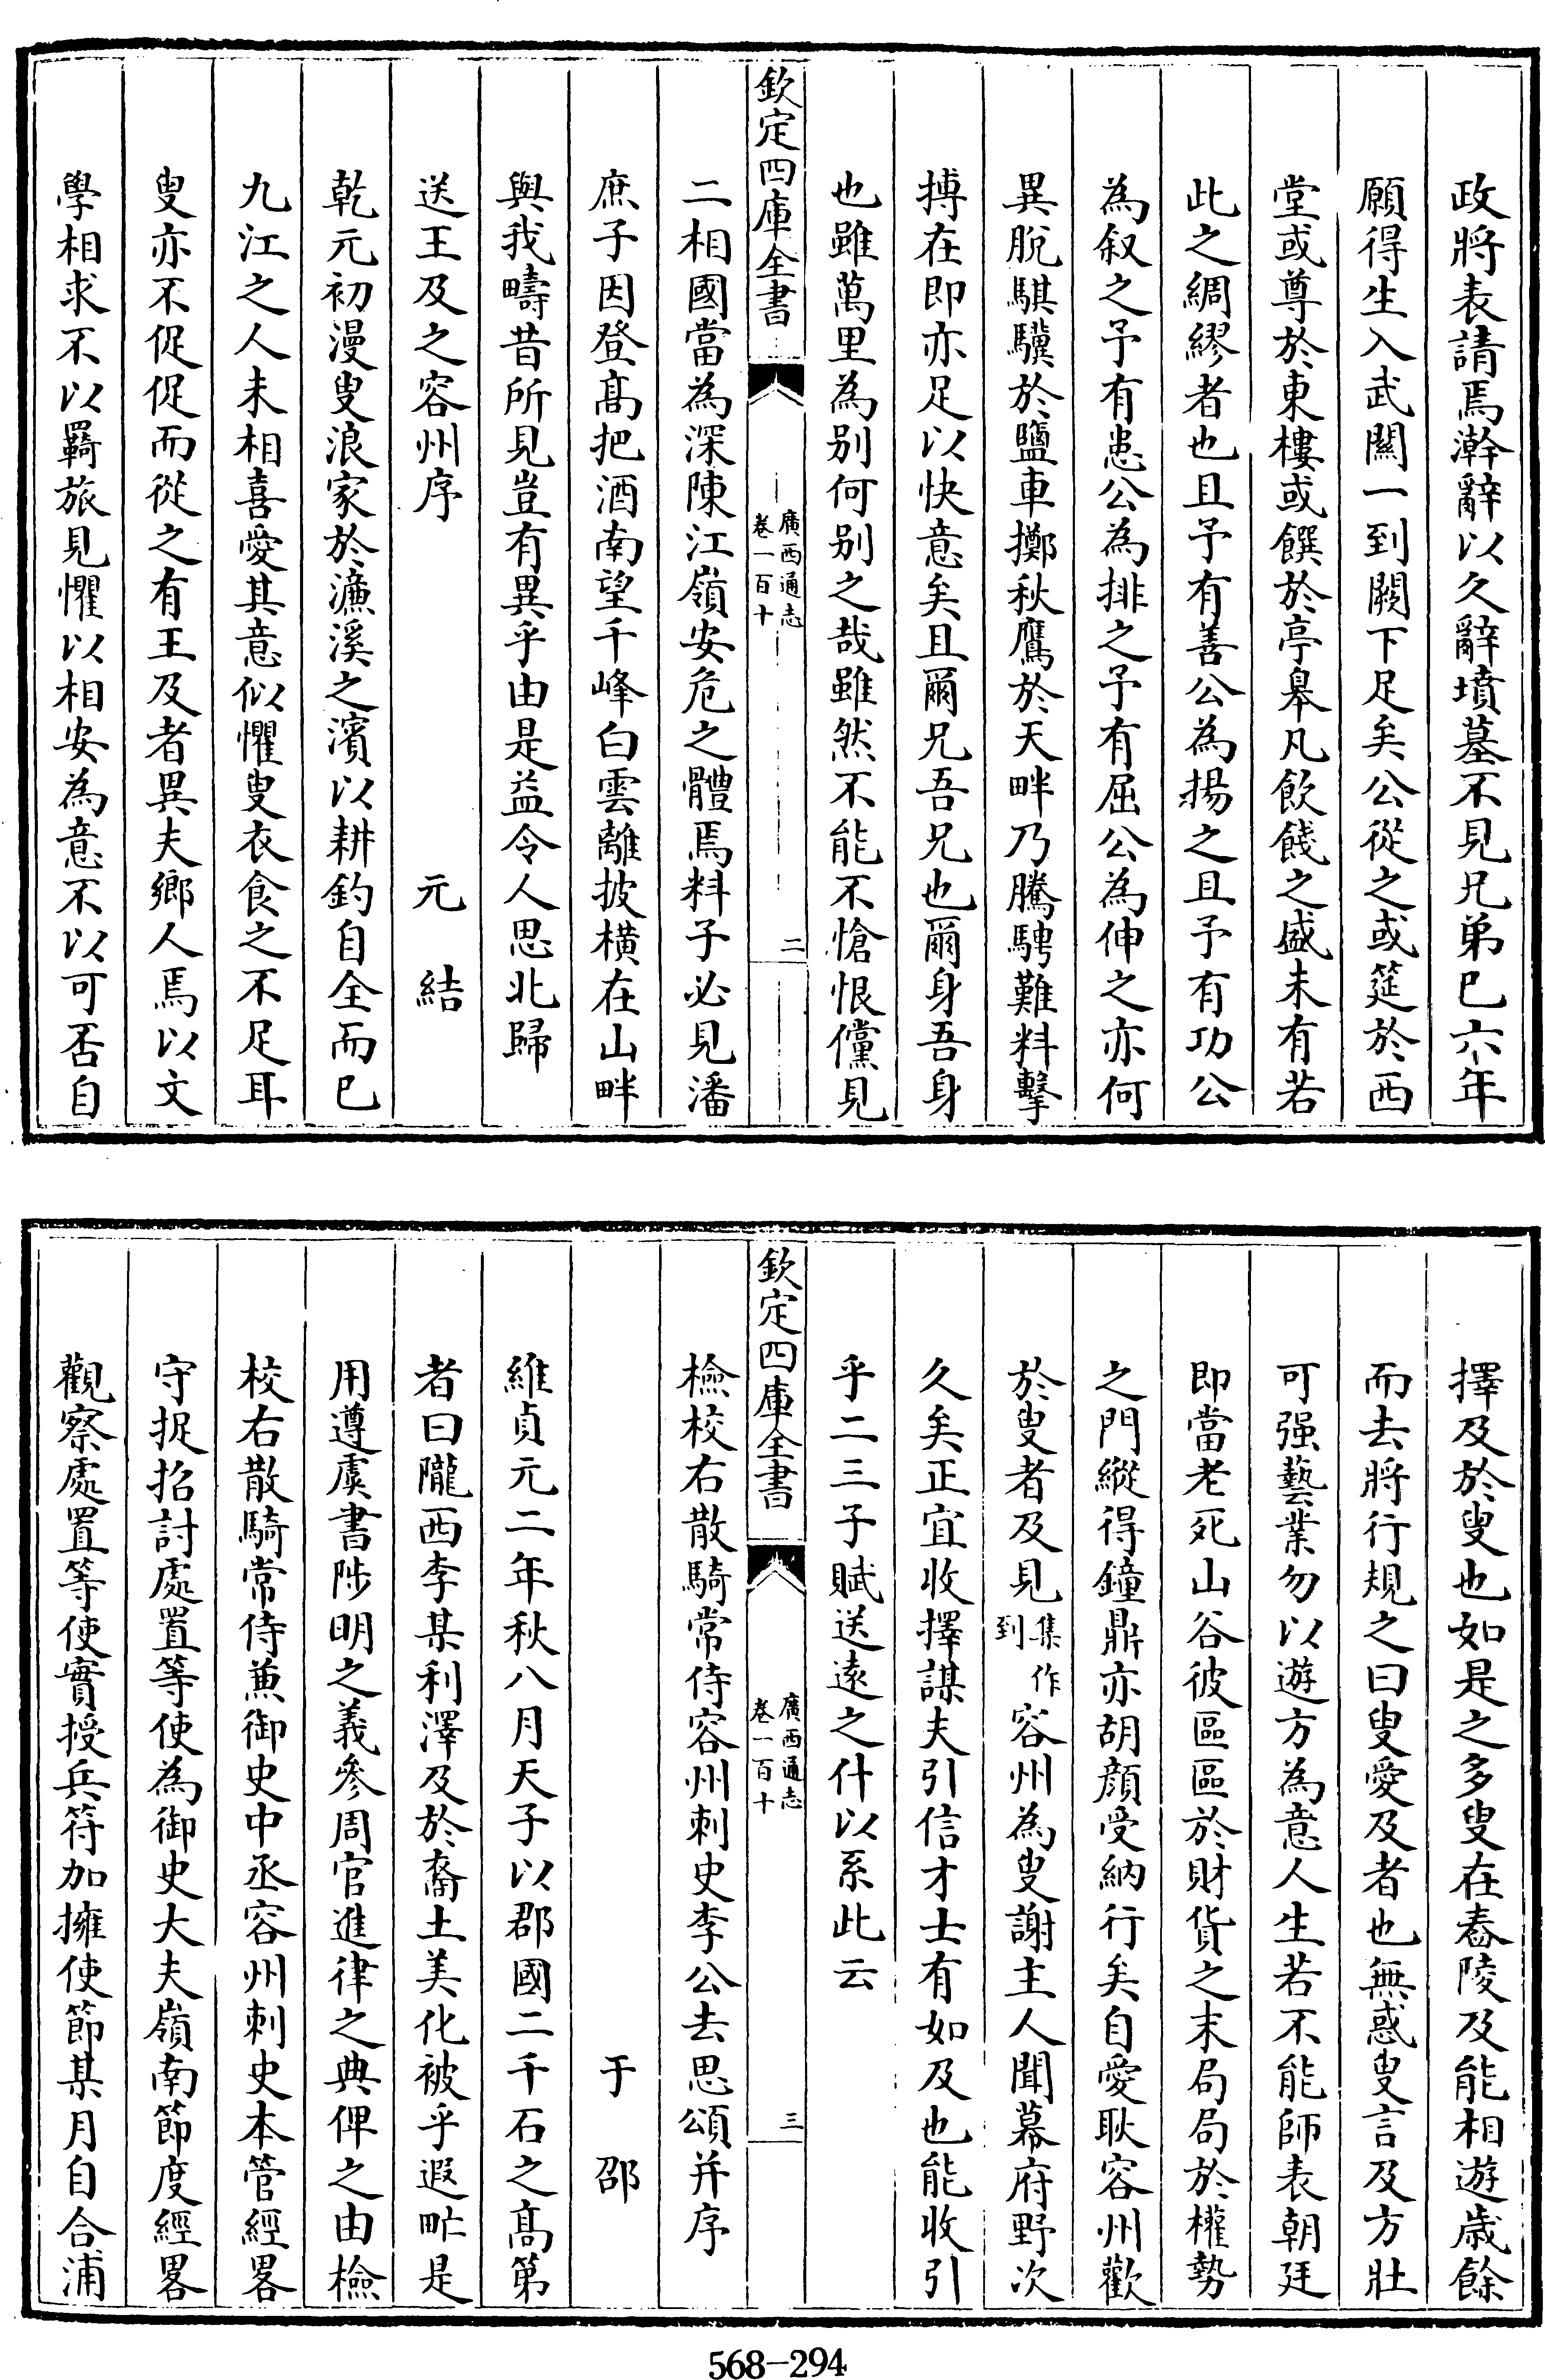 政將表請焉瀚辭以久辭墳墓不見兄弟巳六年
願得生入武闗一到闕下足矣公從之或筵於西
堂或尊於東樓或饌於亭臯凡飲餞之盛未有若
此之綢繆者也且予有善公為揚之且予有功公
為叙之予有患公為排之予有屈公為伸之亦何
異脫騏驥於鹽車擲秋鷹於天畔乃騰騁難料擊
搏在即亦足以快意矣且爾兄吾兄也爾身吾身
也雖萬里為别何别之哉雖然不能不愴恨儻見
欽定四庫全書
廣西通志
卷一百十
二
二相國當為深陳江嶺安危之體焉料子必見潘
庶子因登髙把酒南望千峰白雲離披横在山畔
與我疇昔所見豈有異乎由是益令人思北歸
送王及之容州序 元 結
乾元初漫叟浪家於濂溪之濱以耕釣自全而已
九江之人未相喜愛其意似懼叟衣食之不足耳
叟亦不促促而從之有王及者異夫鄉人焉以文
學相求不以羇旅見懼以相安為意不以可否自
擇及於叟也如是之多叟在舂陵及能相遊歲餘
而去將行規之曰叟愛及者也無惑叟言及方壯
可强藝業勿以遊方為意人生若不能師表朝廷
即當老死山谷彼區區於財貨之末局局於權勢
之門縱得鐘鼎亦胡顔受納行矣自愛耿容州歡
於叟者及見集作到容州為叟謝主人聞幕府野次
久矣正宜收擇謀夫引信才士有如及也能收引
乎二三子賦送遠之什以系此云
欽定四庫全書
廣西通志
卷一百十
三
檢校右散騎常侍容州刺史李公去思頌并序
于 邵
維貞元二年秋八月天子以郡國二千石之髙第
者曰隴西李某利澤及於裔土美化被乎遐甿是
用遵虞書陟明之義參周官進律之典俾之由檢
校右散騎常侍兼御史中丞容州刺史本管經畧
守捉招討處置等使為御史大夫嶺南節度經畧
觀察處置等使實授兵符加擁使節某月自合浦
568-294